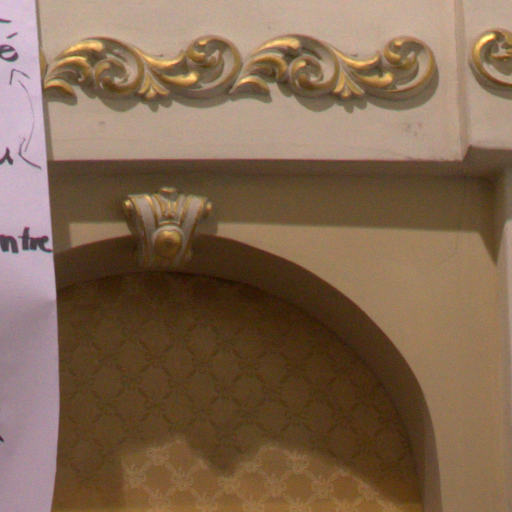 é
u
ntre